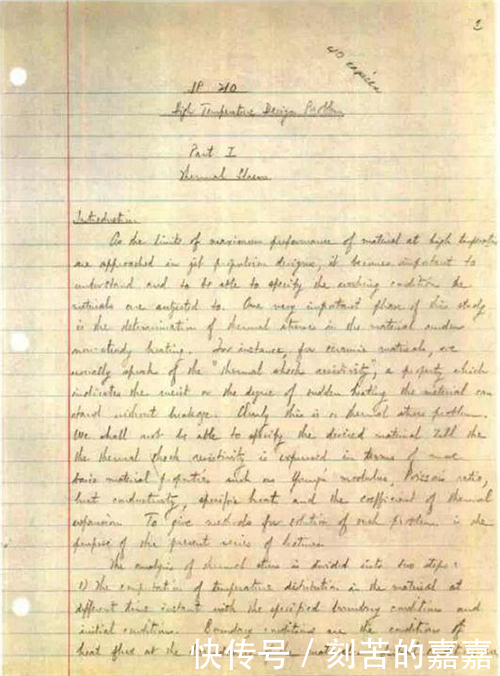 2
40 copies
JP 210
High Temperature Design Problem
Part I
Thermal Stress
Introduction
As the limits of maximum performance of material at high temperature
are approached in jet propulsion designs, it becomes important to
understand and to be able to specify the working condition the
materials are subjected to. One very important phase of this study
is the determination of thermal stresses in the material under
non-steady heating. For instance, for ceramic materials, we
usually speak of the "thermal shock resistivity", a property which
indicates the merit or the degree of sudden heating the material can
stand without breakage. Clearly this is a thermal stress problem.
We shall not be able to specify the desired material till the
the thermal shock resistivity is expressed in terms of more
basic material properties such as Young's modulus, Poisson's ratio,
heat conductivity, specific heat and the coefficient of thermal
expansion. To give methods for solution of such problem is the
purpose of the present series of lectures.
The analysis of thermal stress is divided into two steps:
1) The computation of temperature distribution in the material at
different time instant with the specified boundary conditions and
initial conditions. Boundary conditions are the conditions of
heat flux at the
快传号/刻苦的嘉嘉